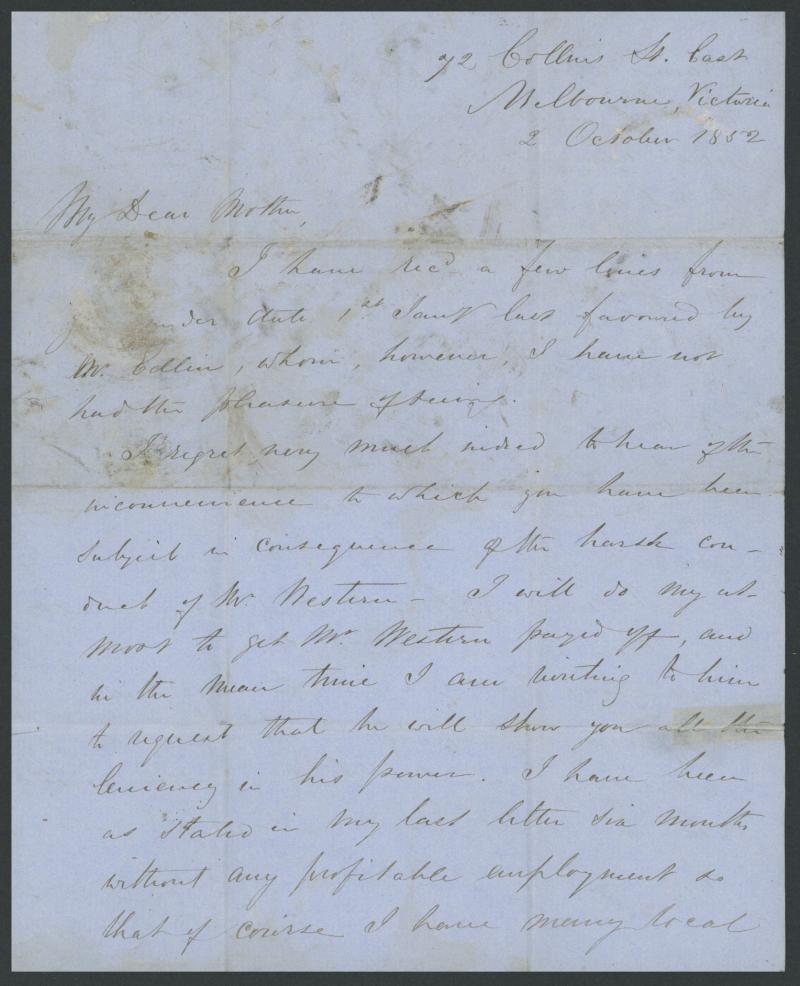 72 Collins St. East
Melbourne, Victoria
2 October 1852
My Dear Mother,
I have recd a few lines from
under date 1st Jany last favoured by
Mr. Edlin, whom, however, I have not
had the pleasure of seeing.
I regret very much indeed to hear of the
inconvenience to which you have been
subject in consequence of the harsh con-
duct of Mr. Western - I will do my ut-
most to get Mr. Western payed off, and
in the mean time I am writing to him
to request that he will show you all the
leniency in his power. I have been
as stated in my last letter six months
without any profitable employment so
that of course I have many local